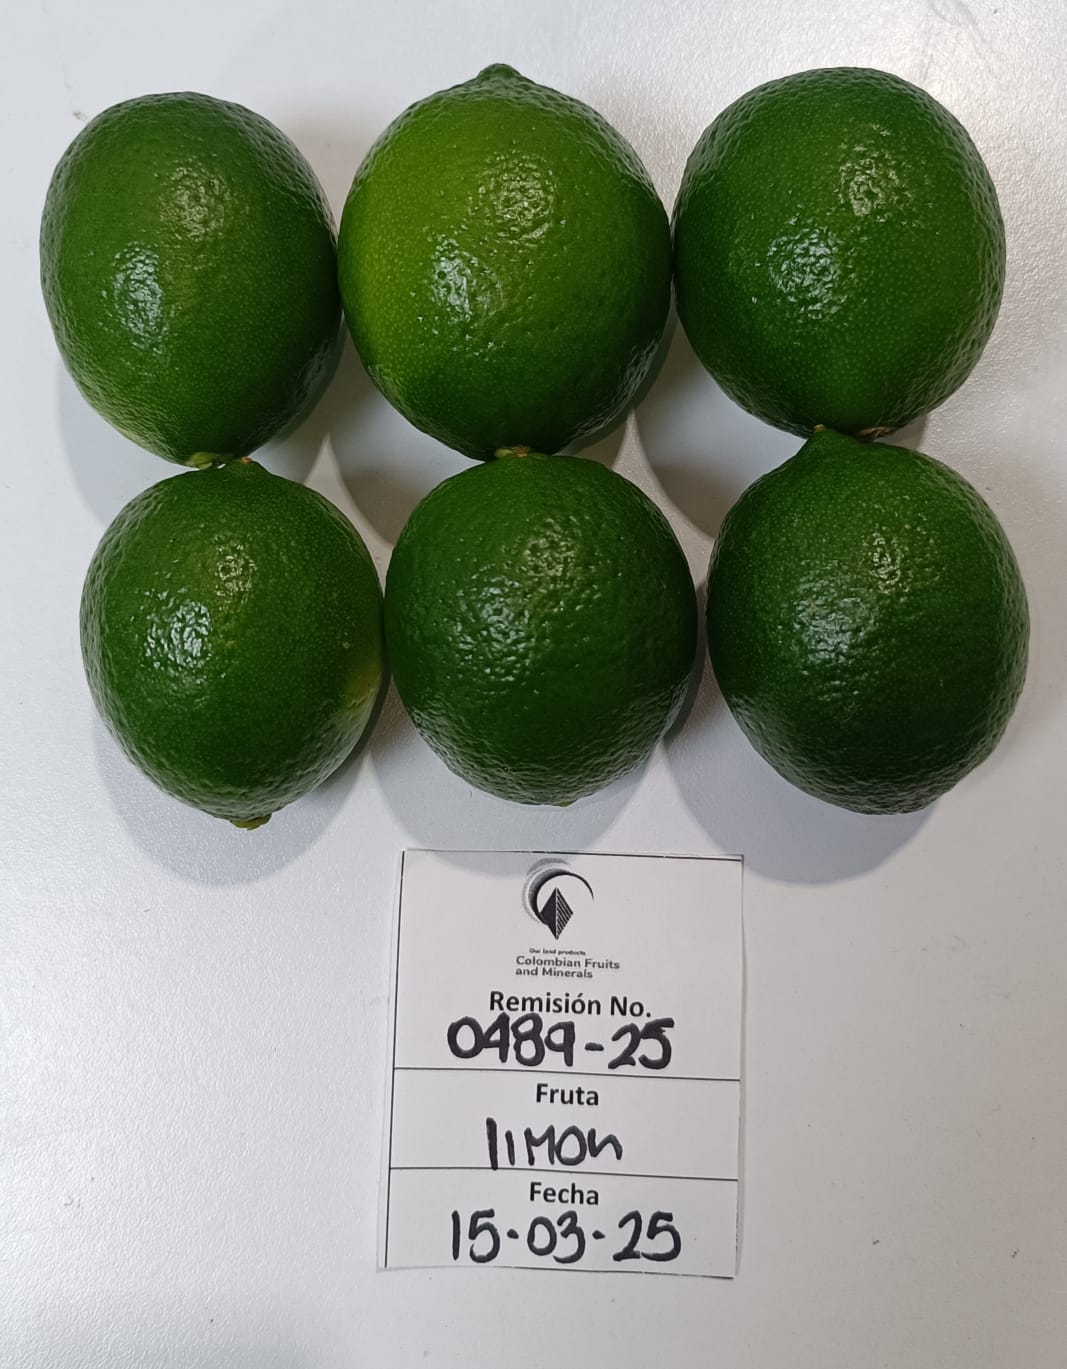 Our land products
Colombian Fruits
and Minerals
Remisión No.
0489-25
Fruta
limon
Fecha
15-03-25